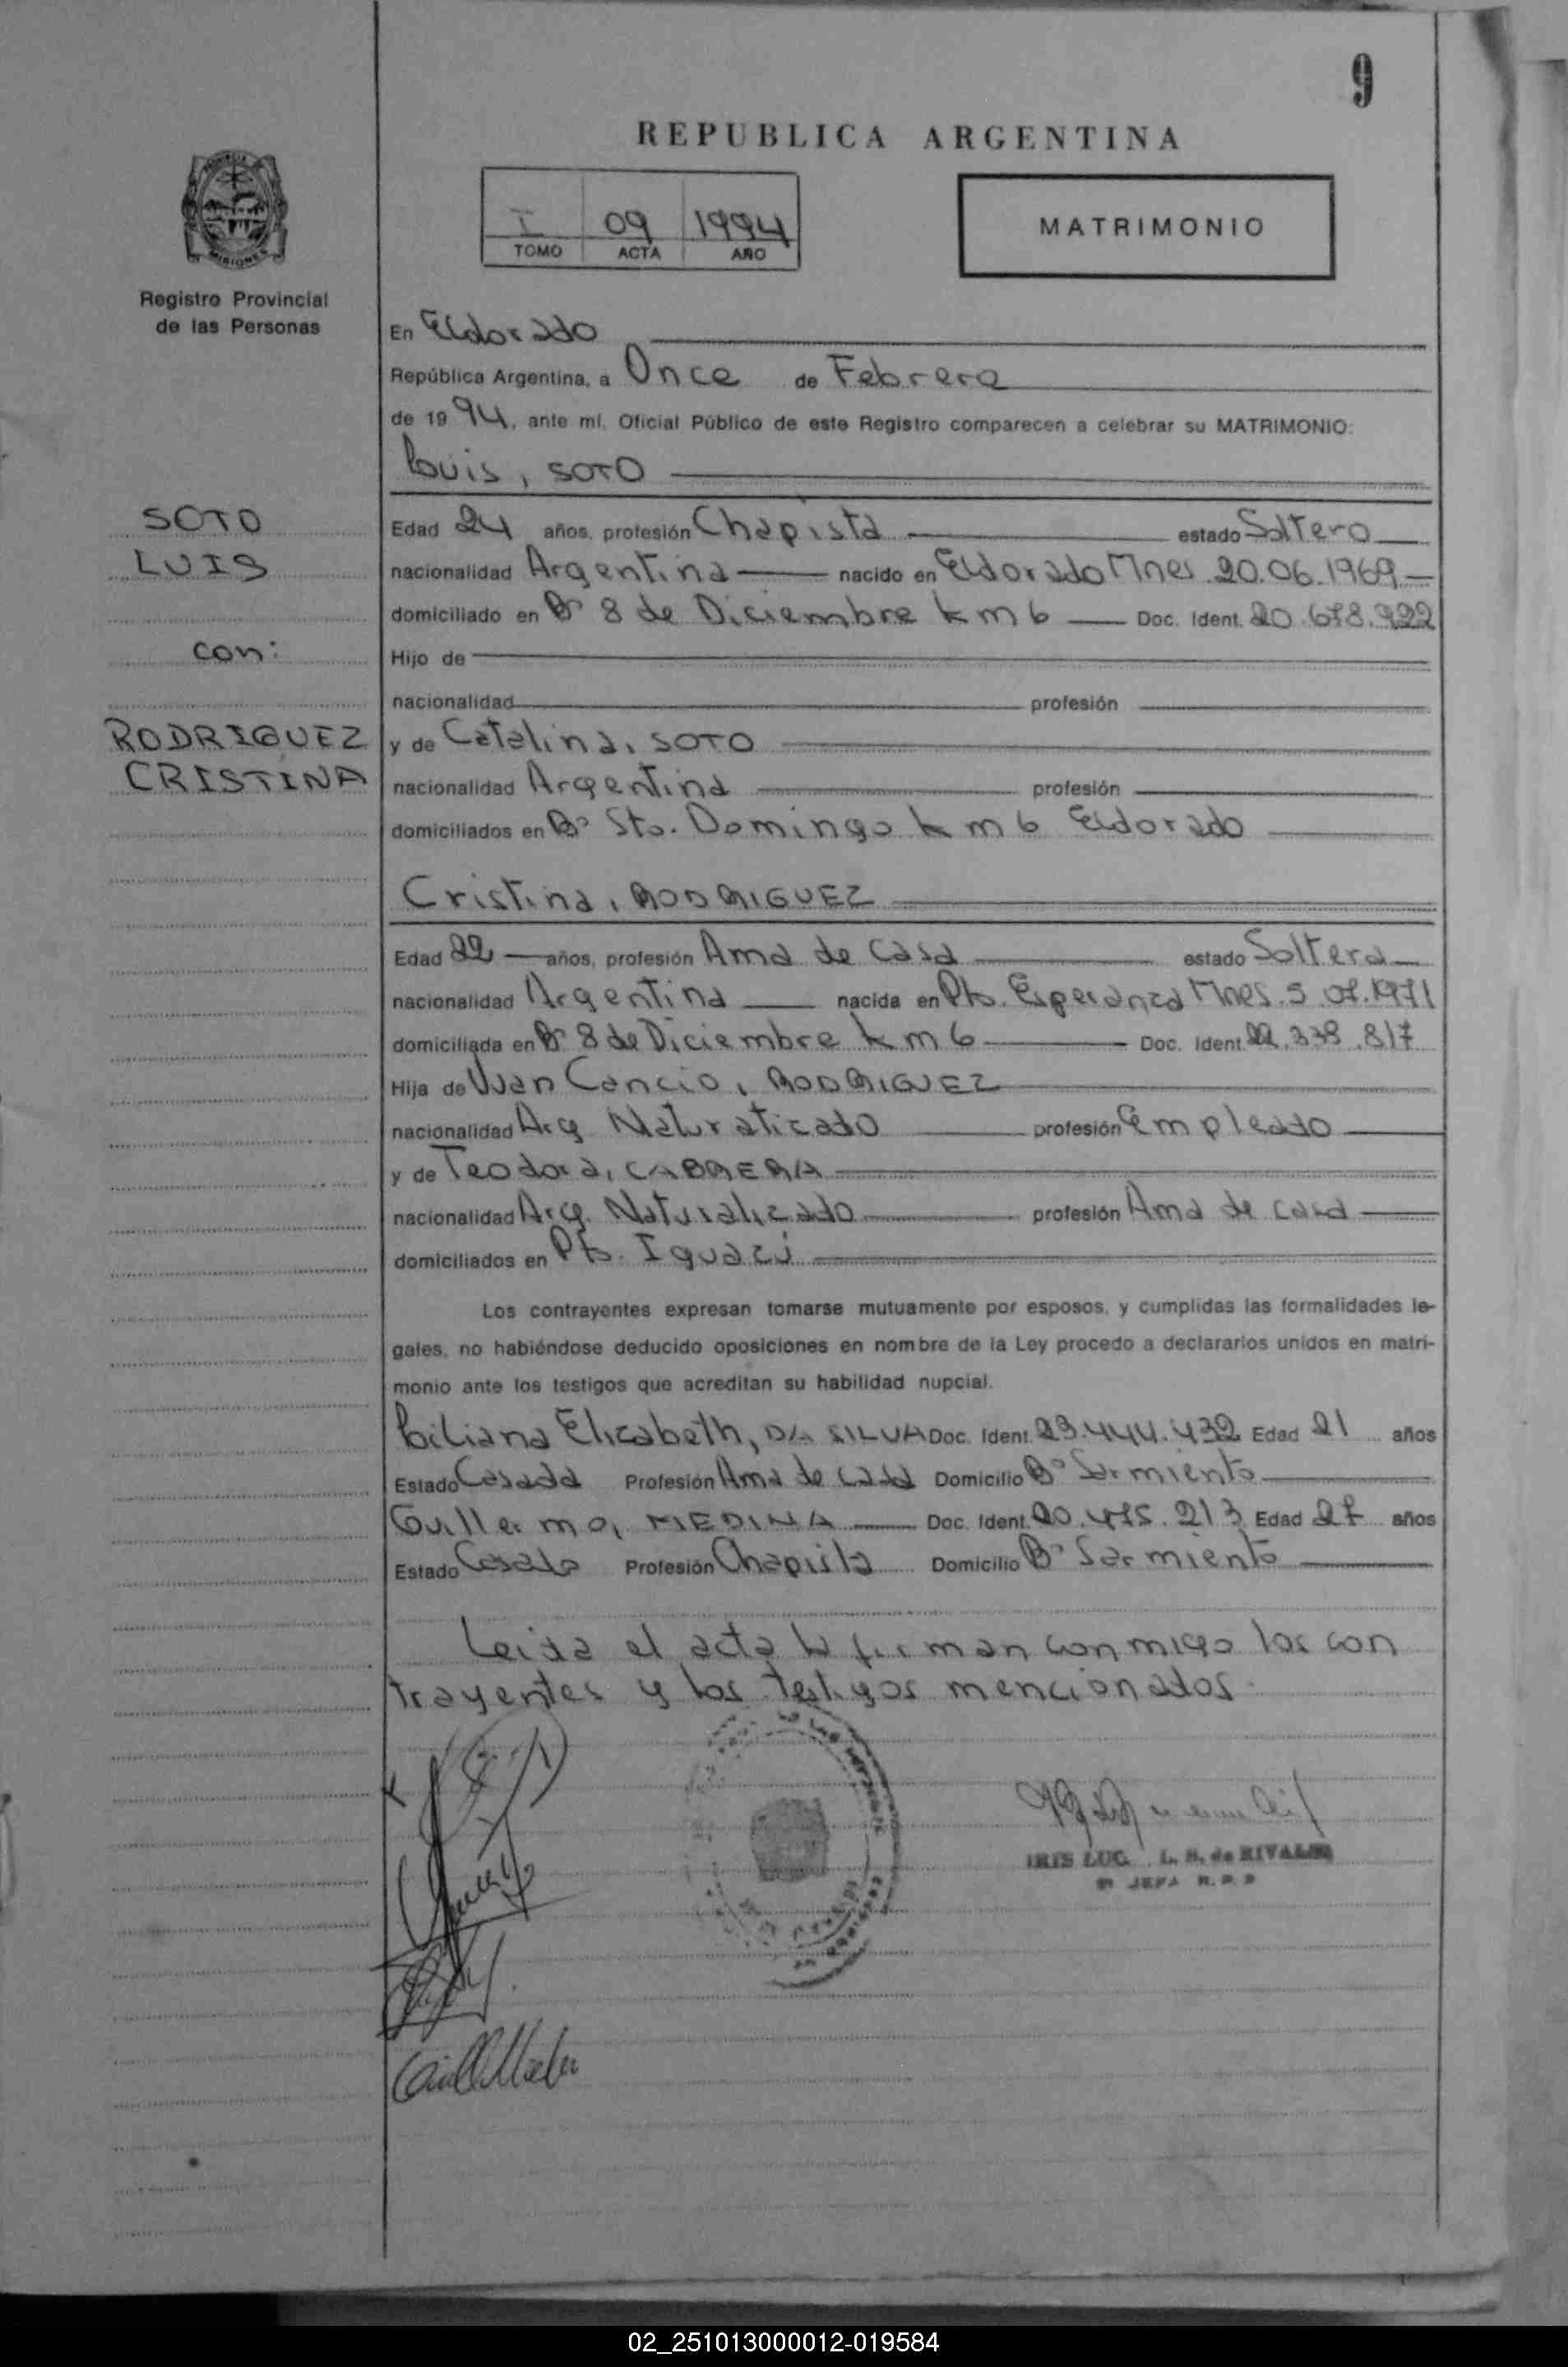 9
REPUBLICA ARGENTINA
I 09 1994
TOMO ACTA AÑO
MATRIMONIO
MISIONES
Registro Provincial
de las Personas
En Eldorado
República Argentina, a Once de Febrero
de 1994, ante mí, Oficial Público de este Registro comparecen a celebrar su MATRIMONIO:
Luis, SOTO
SOTO
LUIS
con:
RODRIGUEZ
CRISTINA
Edad 24 años, profesión Chapista estado Soltero
nacionalidad Argentina nacido en Eldorado Mnes. 20.06.1969
domiciliado en Bº 8 de Diciembre km 6 Doc. Ident. 20.678.922
Hijo de
nacionalidad profesión
y de Catalina, SOTO
nacionalidad Argentina profesión
domiciliados en Bº Sto. Domingo km 6 Eldorado
Cristina, RODRIGUEZ
Edad 22 años, profesión Ama de casa estado Soltera
nacionalidad Argentina nacida en Pto. Esperanza Mnes. 5.07.1971
domiciliada en Bº 8 de Diciembre km 6 Doc. Ident. 22.338.817
Hija de Juan Cancio, RODRIGUEZ
nacionalidad Arg. Naturalizado profesión Empleado
y de Teodora, CABRERA
nacionalidad Arg. Naturalizado profesión Ama de casa
domiciliados en Pto. Iguazú
Los contrayentes expresan tomarse mutuamente por esposos, y cumplidas las formalidades le-
gales, no habiéndose deducido oposiciones en nombre de la Ley procedo a declararlos unidos en matri-
monio ante los testigos que acreditan su habilidad nupcial.
Liliana Elizabeth, DA SILVA Doc. Ident. 23.444.432 Edad 21 años
Estado Casada Profesión Ama de casa Domicilio Bº Sarmiento
Guillermo, MEDINA Doc. Ident. 20.475.213 Edad 27 años
Estado Casado Profesión Chapista Domicilio Bº Sarmiento
Leida el acta la firman conmigo los con
trayentes y los testigos mencionados.
IRIS LUC. L. B. de RIVALDI
JEFA R.P.P
02_251013000012-019584